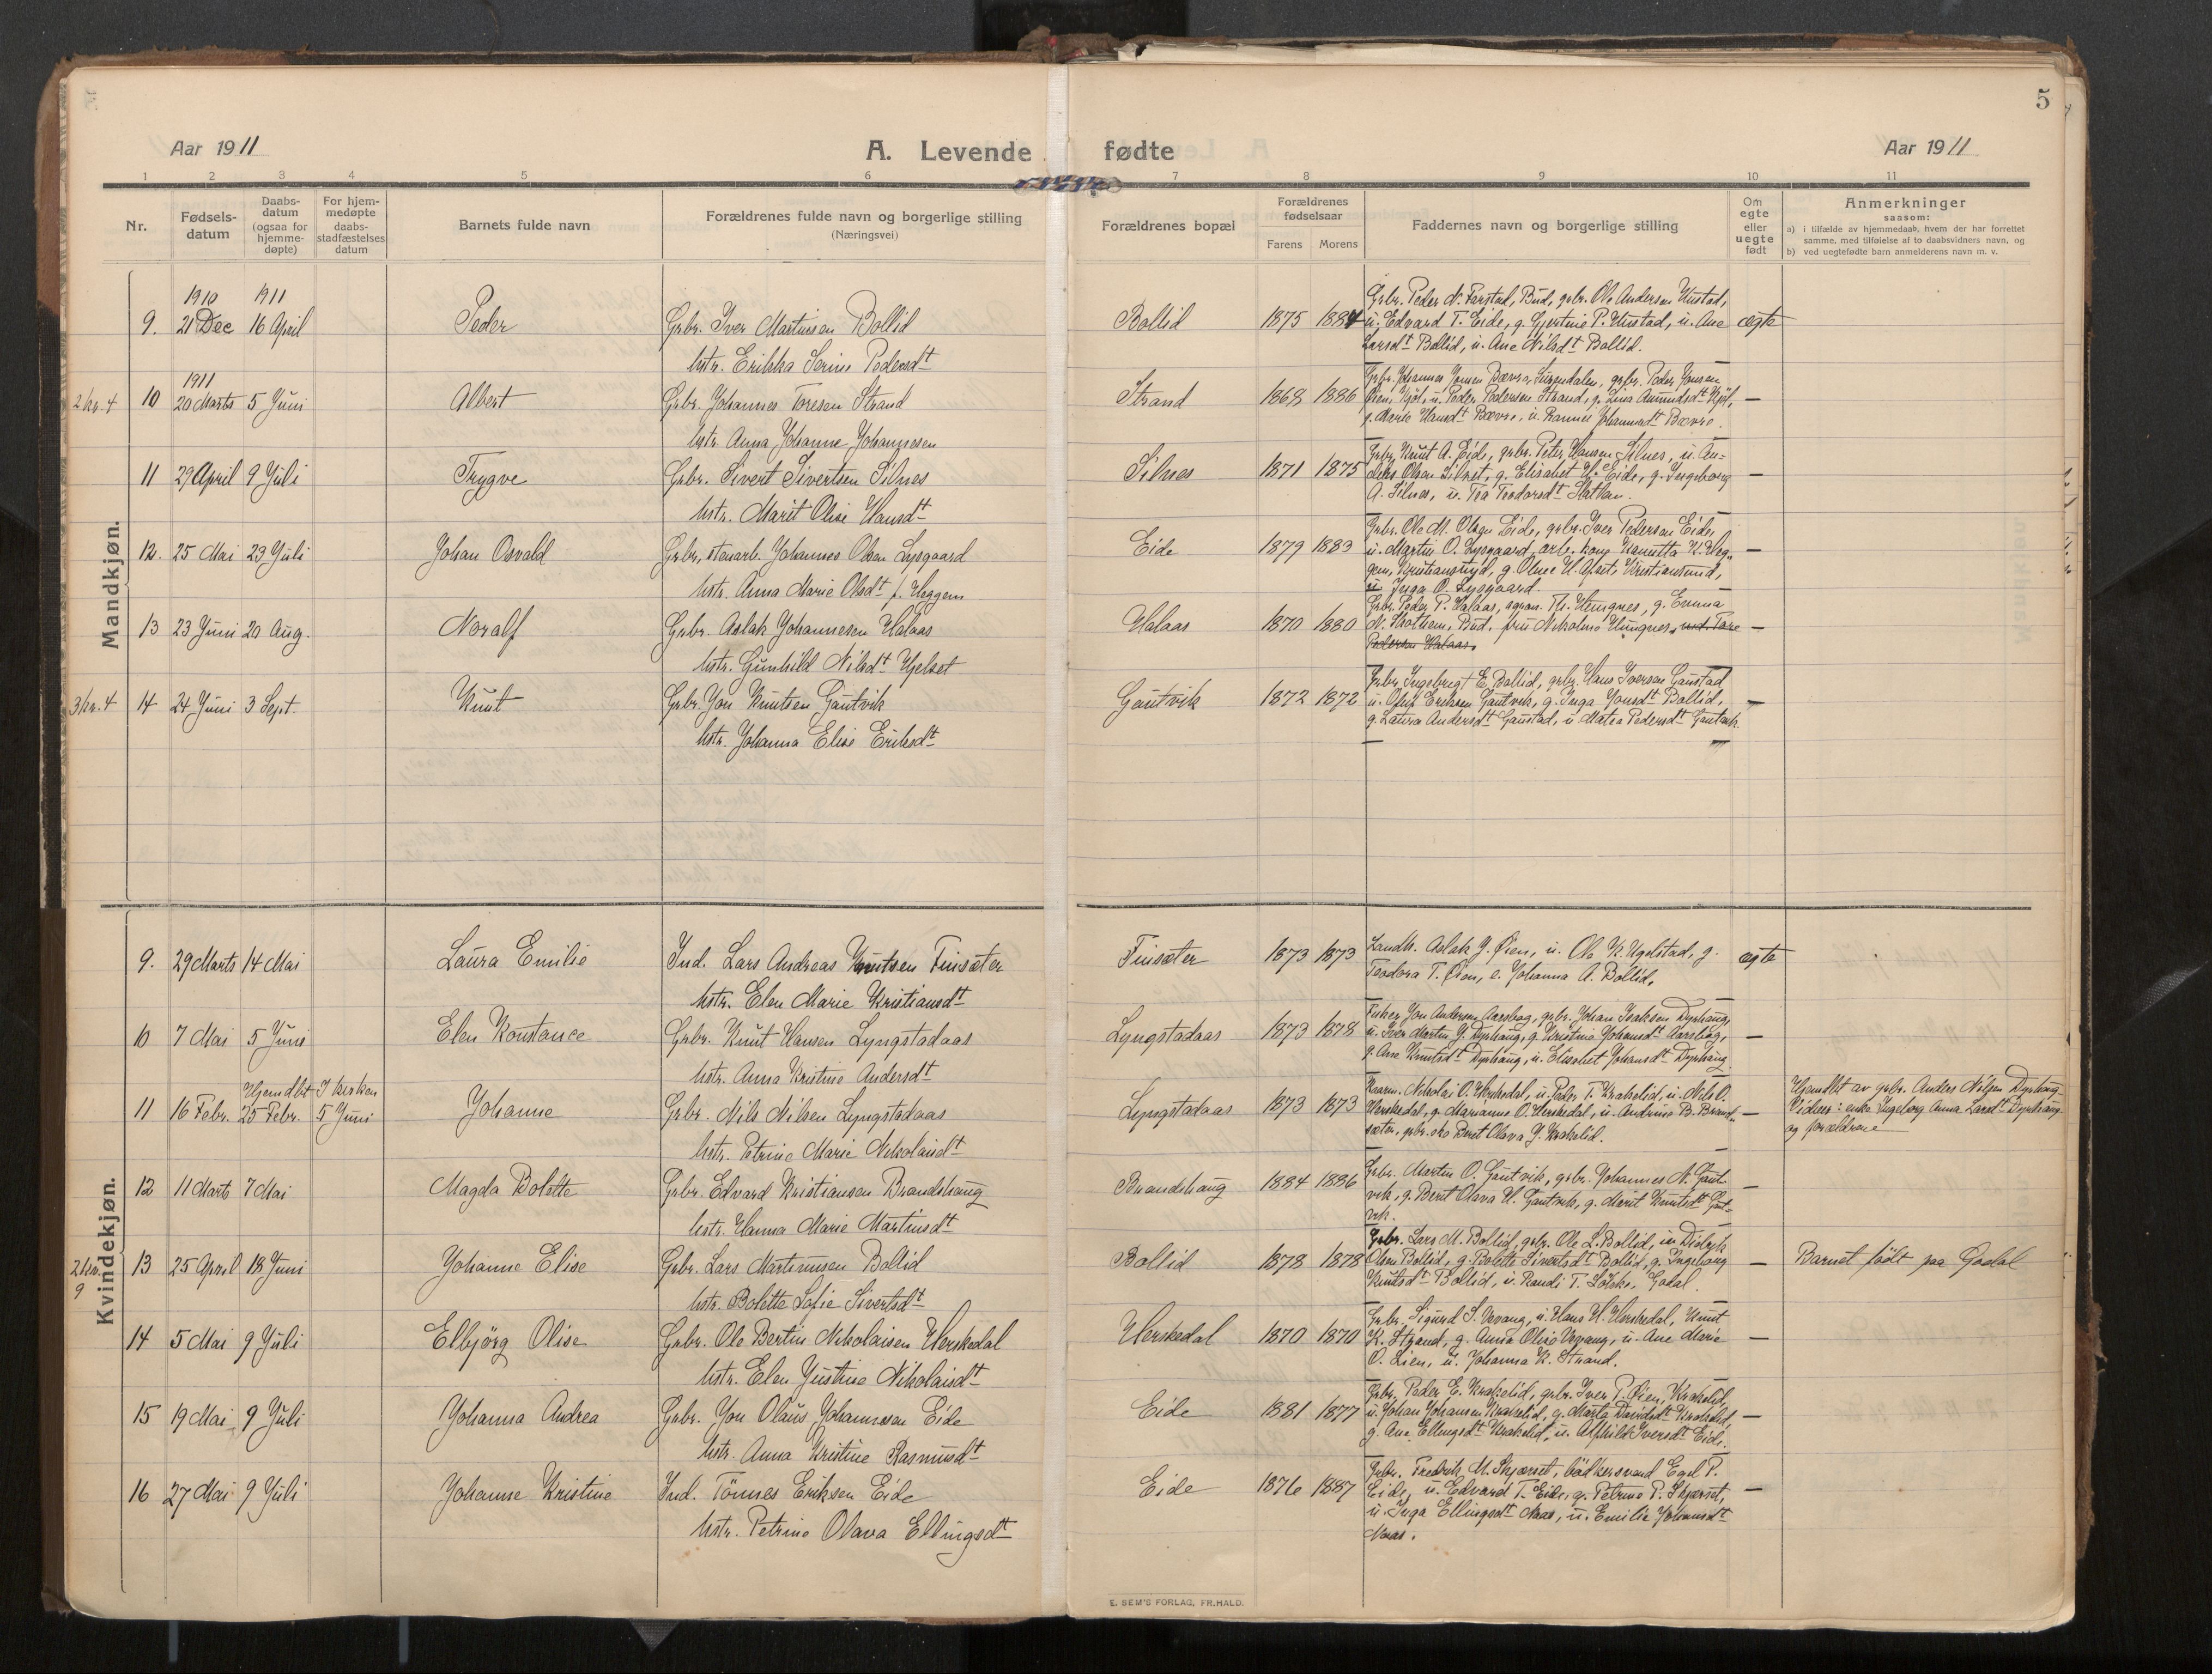 5
Aar 1911
A. Levende fødte
Aar 1911
1 2 3 4 5 6 7 8 9 10 11
Nr.
Fødsels-
datum
Daabs-
datum
(ogsaa for
hjemme-
døpte)
For hjem-
medøpte
daabs-
stadfæstelses
datum
Barnets fulde navn
Forældrenes fulde navn og borgerlige stilling
(Næringsvei)
Forældrenes bopæl
Forældrenes
fødselsaar
Farens Morens
Faddernes navn og borgerlige stilling
Om
egte
eller
uegte
født
Anmerkninger
saasom:
a) i tilfælde av hjemmedaab, hvem der har forrettet
samme, med tilføielse af to daabsvidners navn, og
b) ved uegtefødte barn anmelderens navn m. v.
Mandkjøn.
1910 1911
9. 21 Dec 16 April Peder Grbr. Iver Martinsen Bollid
hstr. Erikka Serine Pedersdt
Bollid 1875 1884
Grbr. Peder N. Farstad, Bud, grbr. Ole Andersen Hustad,
u. Edvard T. Eide, g. Gjertine P. Hustad, u. Ane
Larsdt Bollid, u. Ane Nilsdt Bollid.
egte
1911
2 kr. 4 10 20 Marts 5 Juni Albert Grbr. Johannes Toresen Strand
hstr. Anna Johanne Johannesen
Strand 1868 1886
Grbr. Johannes Jonsen Bævre, Surendalen, grbr. Peder Jonsen
Øien, Kjöl, u. Peder Pedersen Strand, g. Lina Amundsdt Kjöl,
g. Marie Hansdt Bævre, u. Rannei Johannsdt Bævre.
—
11 29 April 9 Juli Trygve Grbr. Sivert Sivertsen Silnes
hstr. Marit Olise Hansdt
Silnes 1871 1875
Grbr. Knut A. Eide, grbr. Peter Hansen Silnes, u. An-
ders Olsen Silset, g. Elisabet H. Eide, g. Ingeborg
A. Silnes, u. Tea Teodorsdt Slatlan.
—
12. 25 Mai 23 Juli Johan Osvald Grbr, stenarb. Johannes Olsen Lysgaard
hstr. Anna Marie Olsdt f. Heggem
Eide 1879 1883
Grbr. Ole M. Olsen Eide, grbr. Iver Pedersen Eide,
u. Martin O. Lysgaard, arb. kone K. Heg-
gem, Kristiansund, g. Oline H. Kristiansund,
u Inga O. Lysgaard.
—
13 23 Juni 20 Aug. Noralf Grbr. Aslak Johannesen Halaas
hstr. Gunhild Nilsdt Hjelset
Halaas 1870 1880
Grbr. Peder P. Halaas, agron. Th. Hungnes, g. Emma
N. Skotten, Bud, frü Nikoline Hungnes, Tore
Pedersen Halaas.
—
3 kr. 4 14 24 Juni 3 Sept. Knut Grbr. Jon Knutsen Gautvik
hstr. Johanna Elise Eriksdt
Gautvik 1872 1872
Grbr. Ingebrigt E. Bollid, grbr. Hans Iversen Gaustad
u. Olaf Eriksen Gautvik, g. Inga Jonsdt Bollid,
g. Laura Andersdt Gaustad, u Matea Pedersdt Gautvik.
—
Kvindekjøn.
9. 29 Marts 14 Mai Laura Emilie Ind. Lars Andreas Knutsen Finsæter
hstr. Elen Marie Kristiansdt
Finsæter 1873 1873
Landh. Aslak J. Øien, u. Ole K. Ugelstad, g.
Teodora T. Øien, e. Johanna A. Bollid.
egte
10 7 Mai 5 Juni Elen Konstance Grbr. Knut Hansen Lyngstadaas
hstr. Anna Kristine Andersdt
Lyngstadaas 1873 1878
Fisker Jon Andersen Aarsbog, grbr. Johan Isaksen Dyrhaug,
u. Iver Martin J. Dyrhaug, g. Kristine Johansdt Aarsbog,
g. Ane Knutsdt Dyrhaug, u. Elisabet Johansdt Dyrhaug.
—
Hjemdbt I kirken
11 16 Febr. 25 Febr. 5 Juni Johanne Grbr. Nils Nilsen Lyngstadaas
hstr. Petrine Marie Nikolaisdt
Lyngstadaas 1873 1873
Kaarm. Nikolai O. Herskedal, u. Peder T. Krakelid, u. Nils O.
Herskedal, g. Marianne O. Herskedal, u. Andrine B. Brand-
sæter, grbr. sko Berit Olava J. Krakelid.
—
Hjemdbt av grbr. Anders Nilsen Dyrhaug
Vidner: enke Ingeborg Anna Larsdt Dyrhaug
og forældrene
12 11 Marts 7 Mai Magda Bolette Grbr. Edvard Kristiansen Brandshaug
hstr. Hanna Marie Martinsdt
Brandshaug 1884 1886
Grbr. Martin O. Gautvik, grbr. Johannes N. Gaut-
vik, g. Berit Olava H. Gautvik, g. Marit Knutsdt Gaut-
vik.
—
2 kr. 9 13 25 April 18 Juni Johanne Elise Grbr. Lars Martinusen Bollid
hstr. Bolette Sofie Sivertsdt
Bollid 1878 1878
Grbr. Lars M. Bollid, grbr. Ole L. Bollid, u. Didrik
Olsen Bollid, g. Bolette Sivertsdt Bollid, g. Ingeborg
Knutsdt Bollid, u. Randi T. Silske, Gadal.
—
Barnet født paa Gadal
14 5 Mai 9 Juli Elbjörg Olise Grbr. Ole Bertin Nikolaisen Herskedal
hstr. Elen Justine Nikolaisdt
Herskedal 1870 1870
Grbr. Sigurd S. Vevang, u. Hans H. Herskedal, Knut
K. Strand, g. Anna Olise Vevang, u. Ane Marie
O. Lien, u. Johanna K. Strand.
—
15 19 Mai 9 Juli Johanna Andrea Grbr. Jon Olaus Johannesen Eide
hstr. Anna Kristine Rasmusdt
Eide 1881 1877
Grbr. Peder E. Krakelid, grbr. Iver P. Øien, Krakelid,
u. Johan Johansen Krakelid, g. Marta Davidsdt Krakelid,
g. Ane Ellingsdt Krakelid, u. Alfhild Iversdt Eide.
—
16 27 Mai 9 Juli Johanne Kristine Ind. Tönnes Eriksen Eide
hstr. Petrine Olava Ellingsdt
Eide 1876 1887
Grbr. Fredrik M. Skjærset, bödkersvend Egil P.
Eide, u. Edvard T. Eide, g. Petrine P. Skjærset,
u. Inga Ellingsdt Naas, u. Emilie Johansdt
Naas.
—
E. SEM'S FORLAG, FR.HALD.